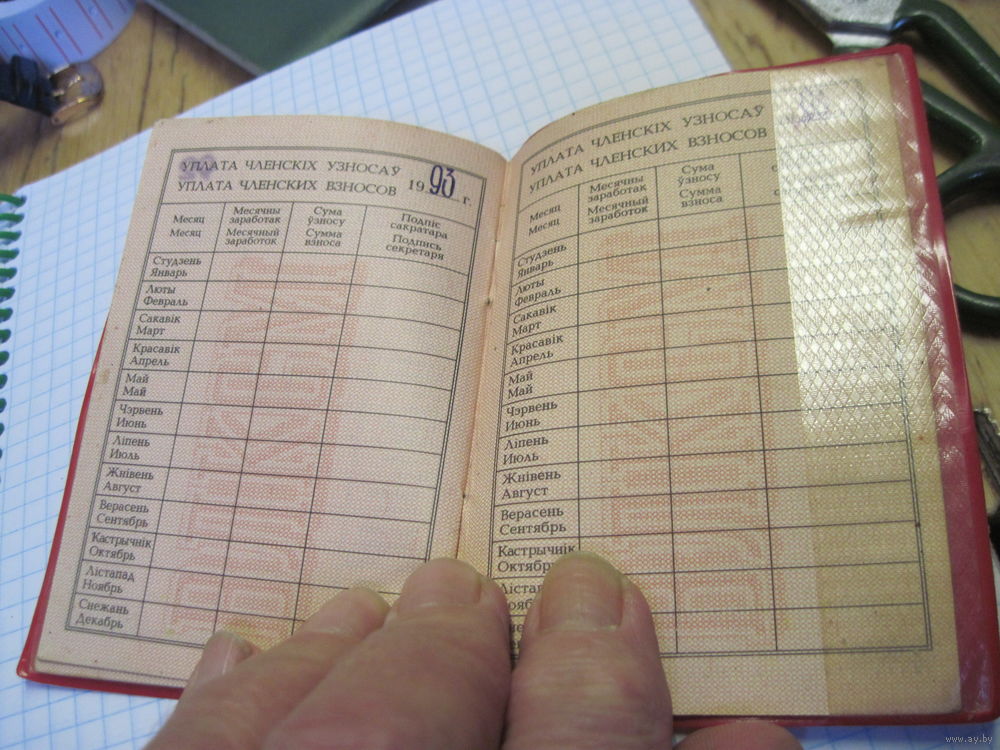 УПЛАТА ЧЛЕНСКІХ УЗНОСАЎ
УПЛАТА ЧЛЕНСКИХ ВЗНОСОВ 1993 г.
Месяц
Месяц
Месячны
заработак
Месячный
заработок
Сума
ўзносу
Сумма
взноса
Подпіс
сакратара
Подпись
секретаря
Студзень
Январь
Люты
Февраль
Сакавік
Март
Красавік
Апрель
Май
Май
Чэрвень
Июнь
Ліпень
Июль
Жнівень
Август
Верасень
Сентябрь
Кастрычнік
Октябрь
Лістапад
Ноябрь
Снежань
Декабрь
УПЛАТА ЧЛЕНСКІХ УЗНОСАЎ
УПЛАТА ЧЛЕНСКИХ ВЗНОСОВ
Месяц
Месяц
Месячны
заработак
Месячный
заработок
Сума
ўзносу
Сумма
взноса
Студзень
Январь
Люты
Февраль
Сакавік
Март
Красавік
Апрель
Май
Май
Чэрвень
Июнь
Ліпень
Июль
Жнівень
Август
Верасень
Сентябрь
Кастрычнік
Октябрь
www.ay.by